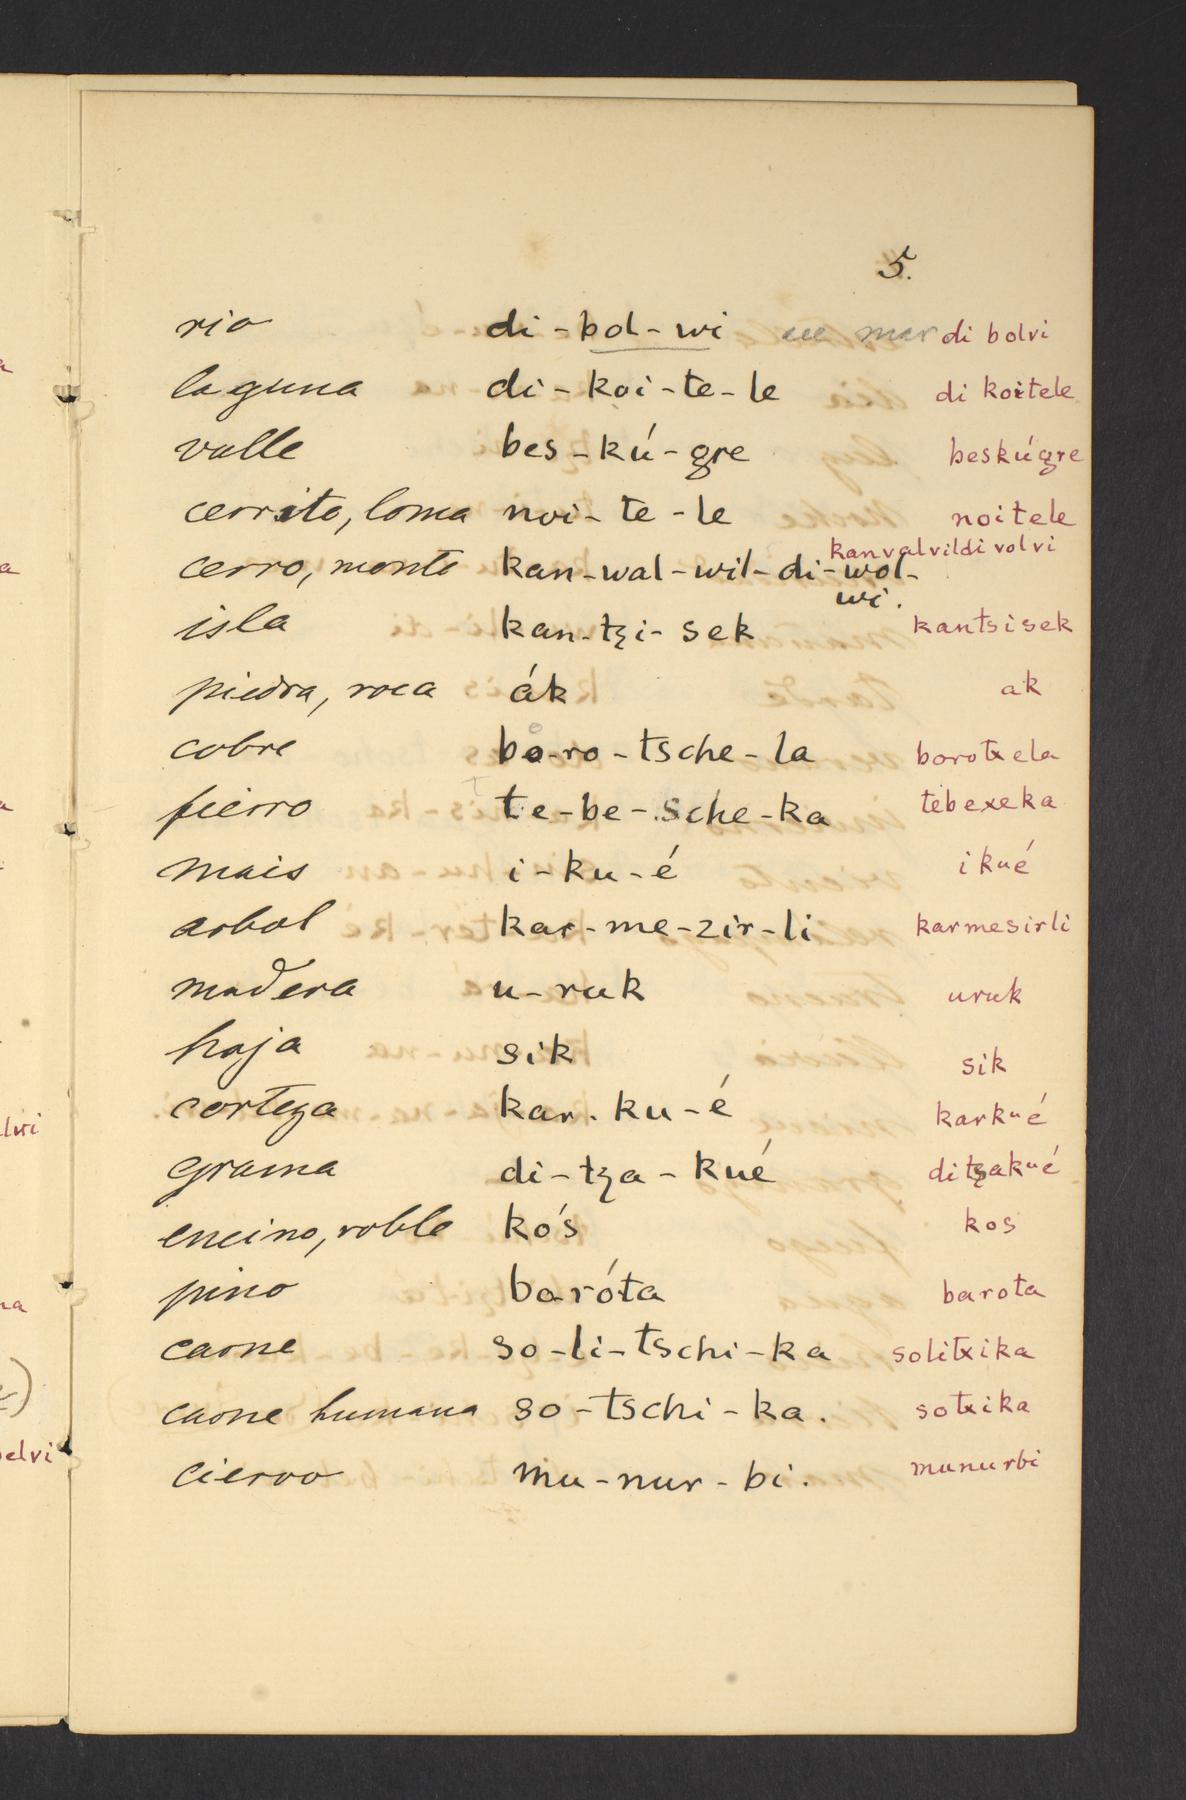 5.
rio di-bol-wi mar di bolvi
laguna di-koi-te-le di koitele
valle bes-kú-gre beskúgre
cerrito, loma noi-te-le noitele
kanvalvildivolvi
cerro, monte kan-wal-wil-di-wol-
wi.
isla kan-tzi-sek kantsisek
piedra, roca ák ak
cobre bo-ro-tsche-la borotxela
fierro te-be-sche-ka tebexeka
mais i-ku-é ikué
arbol kar-me-zir-li karmesirli
madera u-ruk uruk
hoja sik sik
corteza kar-ku-é karkué
grama di-tza-kué ditzakué
encino, roble kós kos
pino baróta barota
carne so-li-tschi-ka solitxika
carne humana so-tschi-ka. sotxika
ciervo mu-nur-bi. munurbi